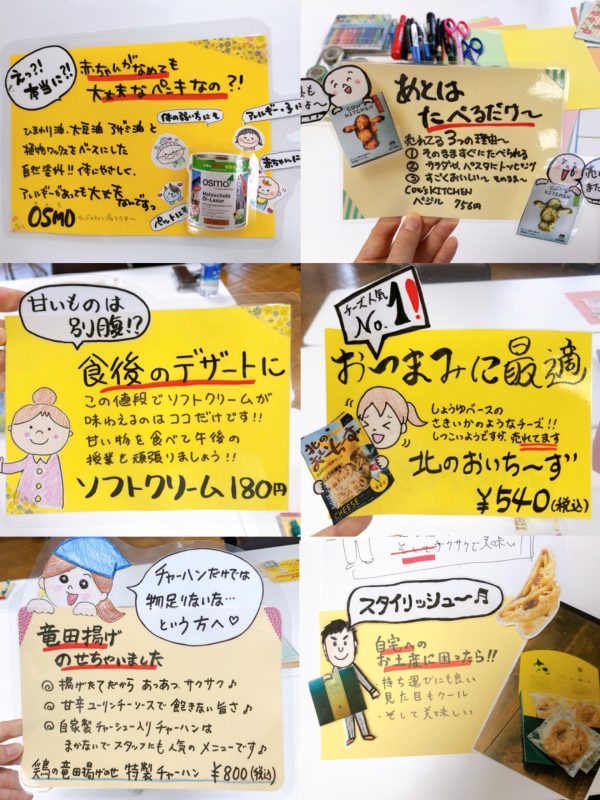 えっ?!
本当に?!
赤ちゃんがなめても
大丈夫なペンキなの?!
体の弱い方にも
アレルギーっ子にも〜
ひまわり油、大豆油、アザミ油と
植物ワックスをベースにした
自然塗料!!体にやさしく、
アレルギーがあっても大丈夫なんですっ
赤ちゃんに
ペットに
OSMO
osmo
Holzschutz
Öl-Lasur
あとは
たべるだけ〜
COW'S
KITCHEN
売れてる3つの理由〜
① そのまますぐにたべられる
② サラダや、パスタにトッピング
③ すごくおいしい〜
COW'S KITCHEN
バジル 756円
COW'S
KITCHEN
甘いものは
別腹!?
食後のデザートに
この値段でソフトクリームが
味わえるのはココだけです!!
甘い物を食べて午後の
授業と頑張りましょう!!
ソフトクリーム180円
チーズ人気
No.1!
おつまみに最適
しょうゆベースの
さきいかのようなチーズ!!
しつこいようですが、売れてます
北のおいち〜ず
CHEESE
¥540(税込)
チャーハンだけでは
物足りないな…
という方へ♡
竜田揚げ
のせちゃいました
◎ 揚げたてだから あっあっ、サクサク♪
◎ 甘辛ユーリンチーソースで飽きない旨さ♪
◎ 自家製チャーシュー入りチャーハンは
まかないでスタッフにも人気のメニューです♪
鶏の竜田揚げのせ 特製チャーハン ¥800(税込)
そしてサクサクで美味しい
スタイリッシュ〜♬
自宅への
お土産に困ったら!!
持ち運びにも良い
見た目もクール
・そして美味しい